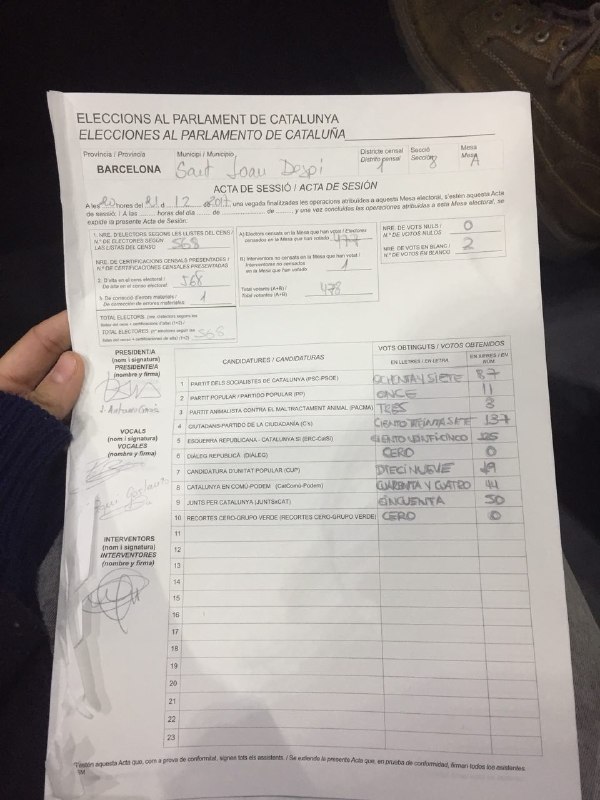 ELECCIONS AL PARLAMENT DE CATALUNYA
ELECCIONES AL PARLAMENTO DE CATALUÑA
Província / Provincia Municipi / Municipio Districte censal Secció Mesa
BARCELONA Sant Joan Despí Distrito censal 1 Sección 8 Mesa A
ACTA DE SESSIÓ / ACTA DE SESIÓN
A les 20 hores del 21 de 12 de 2017, una vegada finalitzades les operacions atribuïdes a aquesta Mesa electoral, s'estén aquesta Acta
de sessió. / A las ........ horas del día ...... de ............ de ......, y una vez concluidas las operaciones atribuidas a esta Mesa electoral, se
expide la presente Acta de Sesión.
1. NRE. D'ELECTORS SEGONS LES LLISTES DEL CENS /
N.º DE ELECTORES SEGÚN
LAS LISTAS DEL CENSO 568
NRE. DE CERTIFICACIONS CENSALS PRESENTADES /
N.º DE CERTIFICACIONES CENSALES PRESENTADAS
2. D'alta en el cens electoral /
De alta en el censo electoral 568
3. De correcció d'errors materials /
De corrección de errores materiales 1
TOTAL ELECTORS
TOTAL ELECTORES 568
A) Electors censats en la Mesa que han votat / Electores
censados en la Mesa que han votado 477
B) Interventors no censats en la Mesa que han votat /
Interventores no censados
en la Mesa que han votado 1
Total votants (A+B) /
Total votantes (A+B) 478
NRE. DE VOTS NULS /
N.º DE VOTOS NULOS 0
NRE. DE VOTS EN BLANC /
N.º DE VOTOS EN BLANCO 2
PRESIDENT/A
(nom i signatura)
PRESIDENTE/A
(nombre y firma)
VOCALS
(nom i signatura)
VOCALES
(nombre y firma)
INTERVENTORS
(nom i signatura)
INTERVENTORES
(nombre y firma)
CANDIDATURES / CANDIDATURAS VOTS OBTINGUTS / VOTOS OBTENIDOS
EN LLETRES / EN LETRA EN XIFRES / EN NÚM.
1 PARTIT DELS SOCIALISTES DE CATALUNYA (PSC-PSOE) OCHENTA Y SIETE 87
2 PARTIT POPULAR / PARTIDO POPULAR (PP) ONCE 11
3 PARTIT ANIMALISTA CONTRA EL MALTRACTAMENT ANIMAL (PACMA) TRES 3
4 CIUTADANS-PARTIDO DE LA CIUDADANÍA (C's) CIENTO TREINTA SIETE 137
5 ESQUERRA REPUBLICANA - CATALUNYA SÍ (ERC-CatSí) CIENTO VEINTICINCO 125
6 DIÀLEG REPUBLICÀ (DIÀLEG) CERO 0
7 CANDIDATURA D'UNITAT POPULAR (CUP) DIECINUEVE 19
8 CATALUNYA EN COMÚ-PODEM (CatComú-Podem) CUARENTA Y CUATRO 44
9 JUNTS PER CATALUNYA (JUNTSxCAT) CINCUENTA 50
10 RECORTES CERO-GRUPO VERDE (RECORTES CERO-GRUPO VERDE) CERO 0
11
12
13
14
15
16
17
18
19
20
21
22
23
S'estén aquesta Acta que, com a prova de conformitat, signen tots els assistents. / Se extiende la presente Acta que, en prueba de conformidad, firman todos los asistentes.